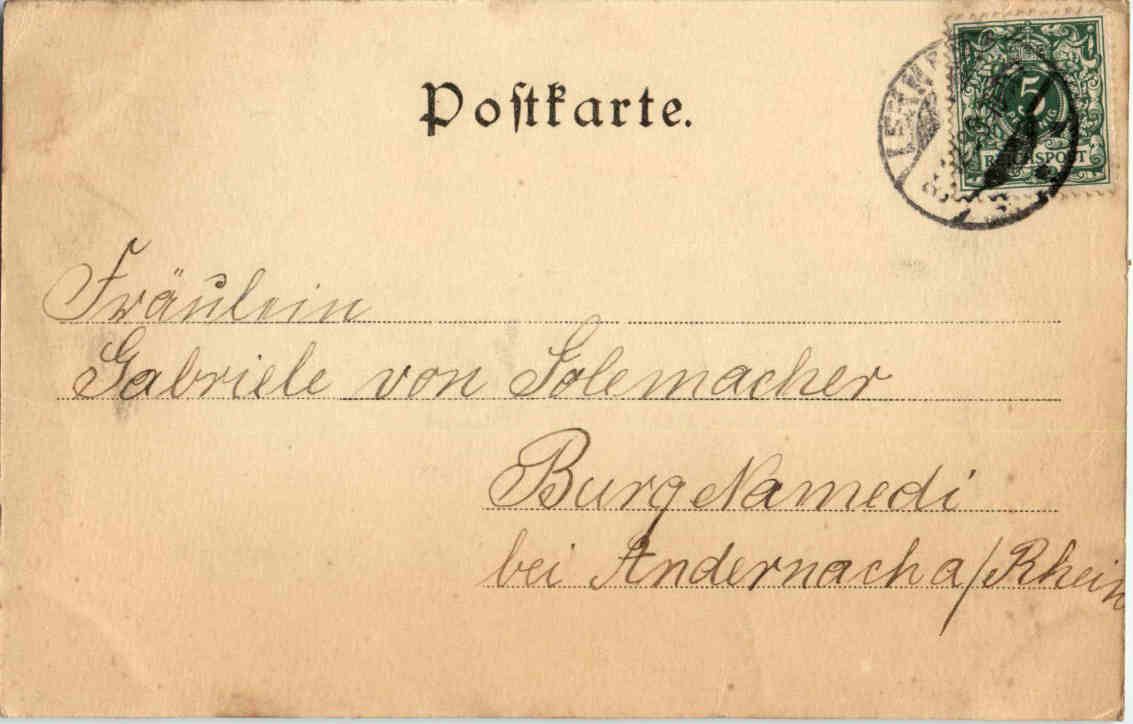 Postkarte.
5
PFENNIG
REICHSPOST
Fräulein
Gabriele von Solemacher
Burg Namedi
bei Andernach a/Rhein